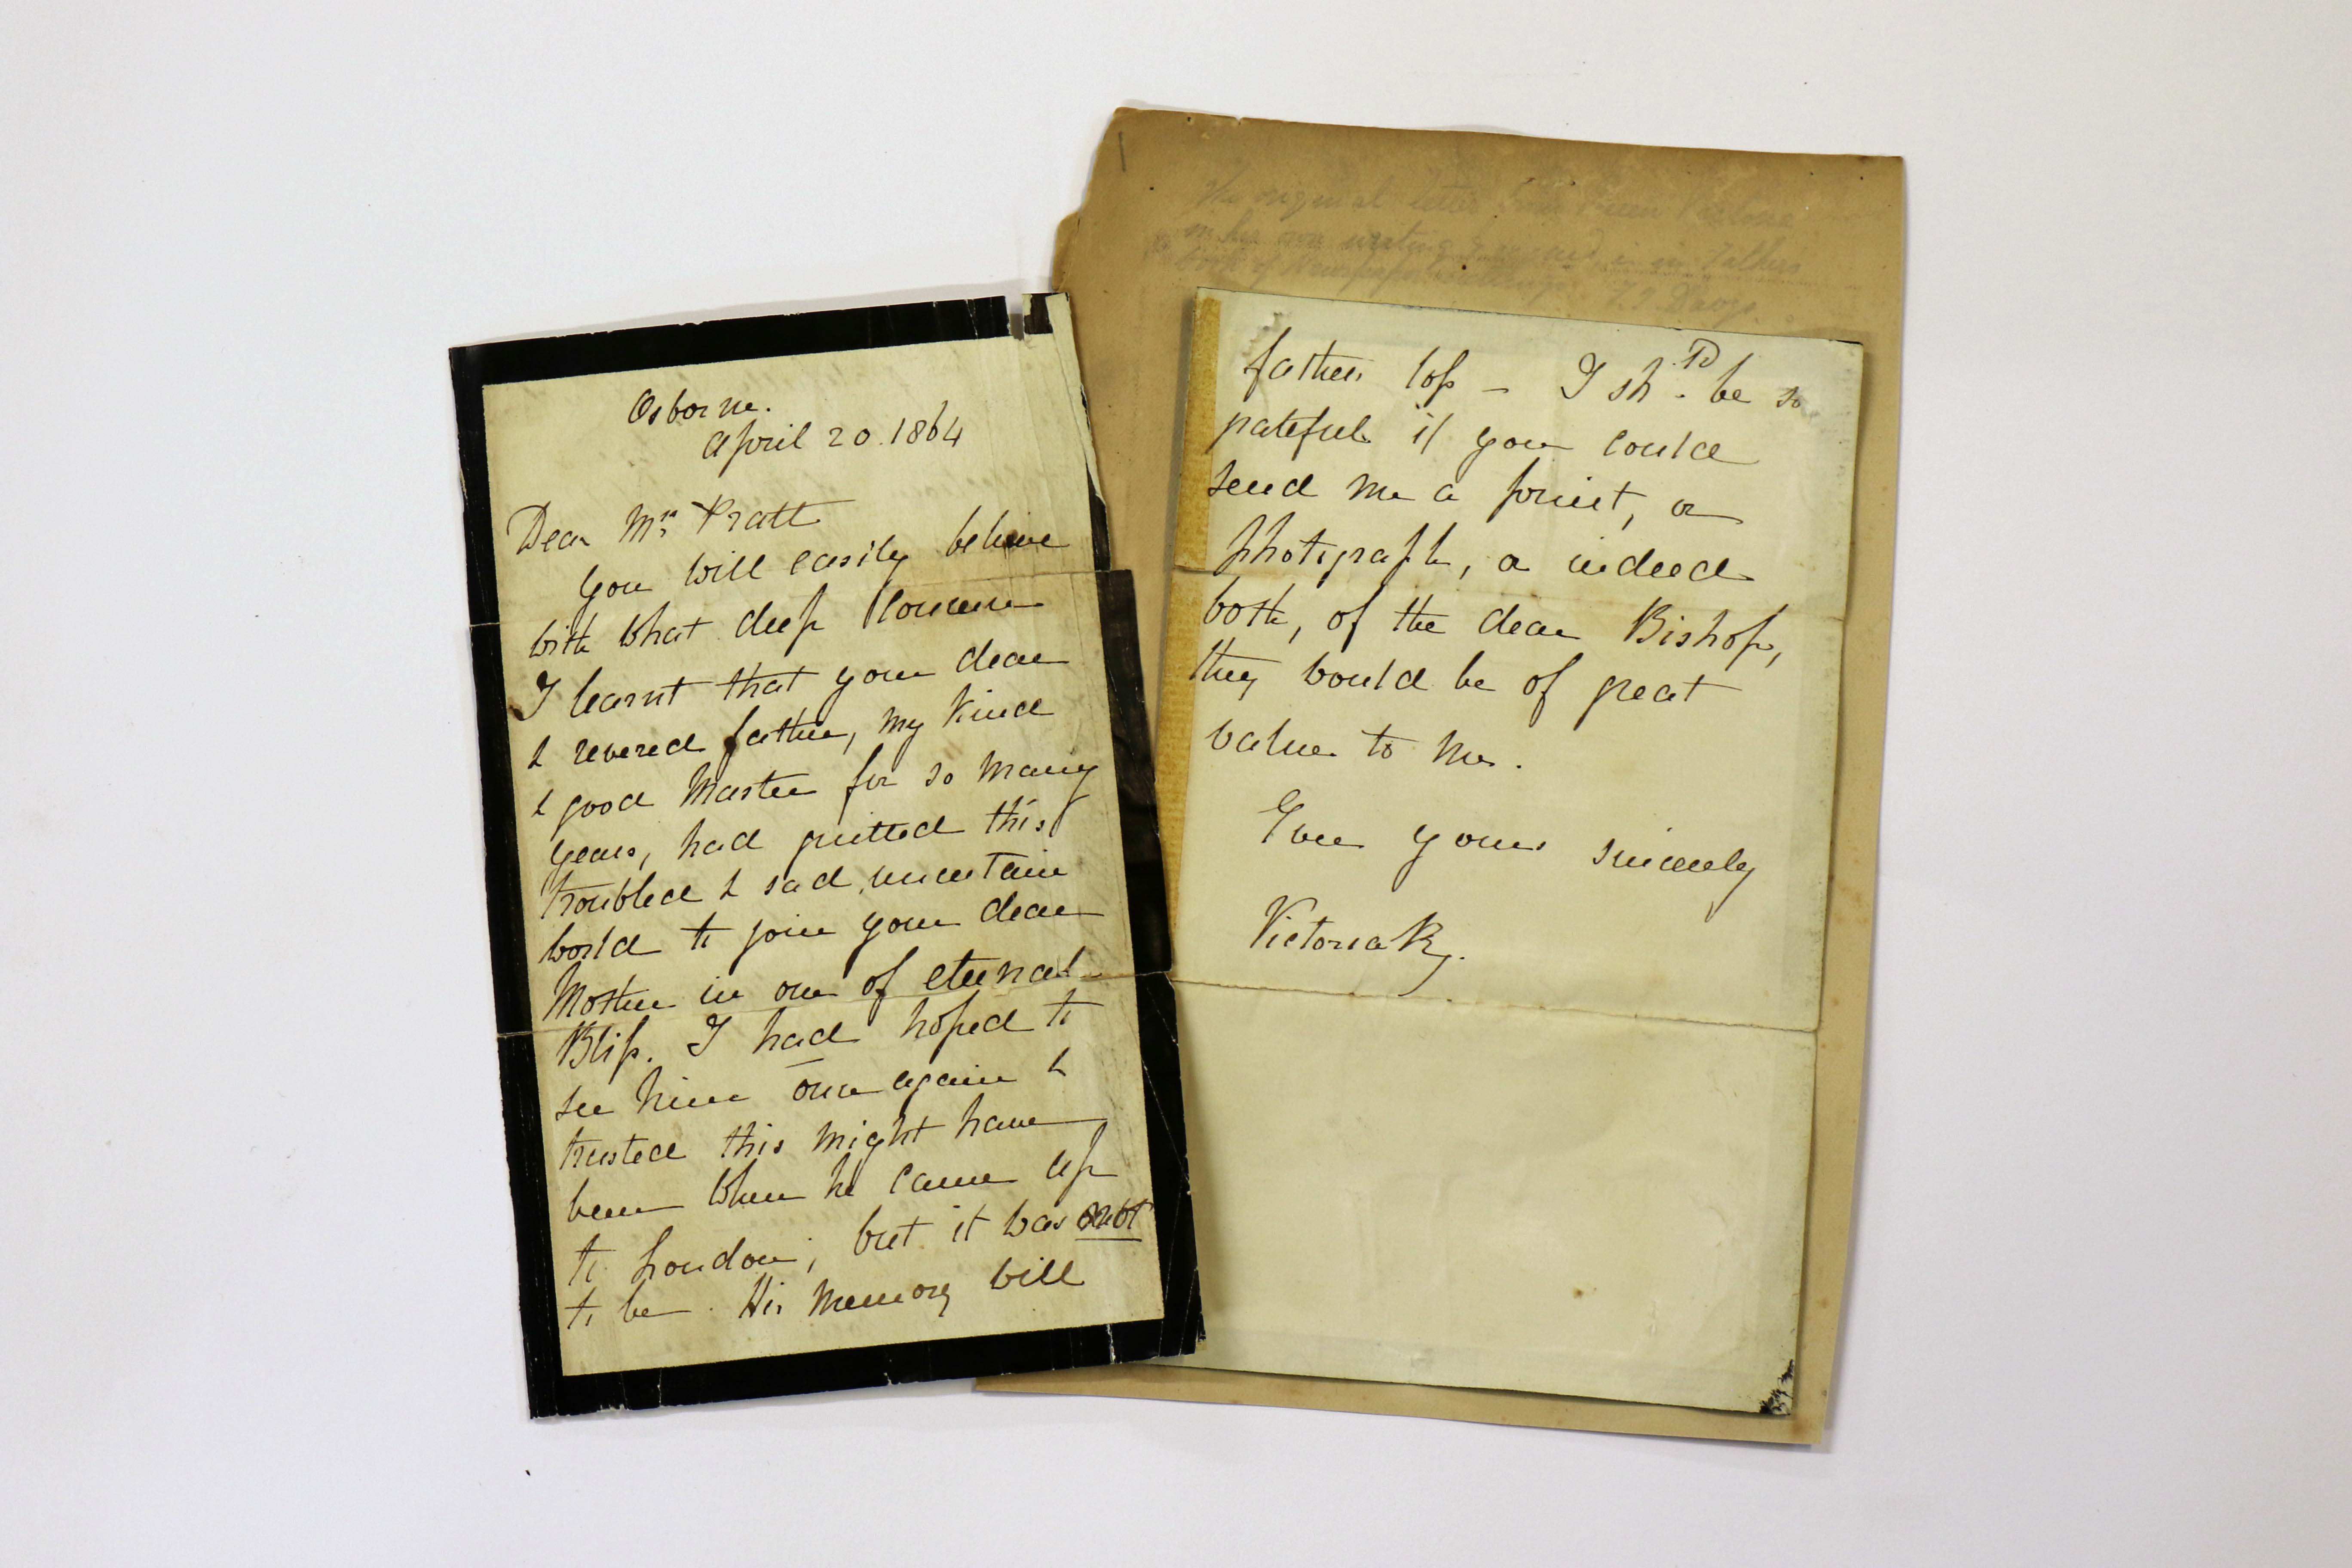 Osborne.
April 20. 1864
Dear Mrs Pratt
You will easily believe
with what deep concern
I learnt that your dear
& revered father, my kind
& good Master for so many
years, had quitted this
troubled & sad, uncertain
world to join your dear
Mother in one of eternal
Bliss. I had hoped to
see him once again &
trusted this might have
been when he came up
to London; but it was not
to be. His memory will
The original letter from Queen Victoria
in her own writing & signed is in Father's
book of Newspaper cuttings. Davys.
father's loss - I shd. be so
grateful if you could
send me a print, or
photograph, or indeed
both, of the dear Bishop,
they would be of great
value to me.
Ever yours sincerely
Victoria R.